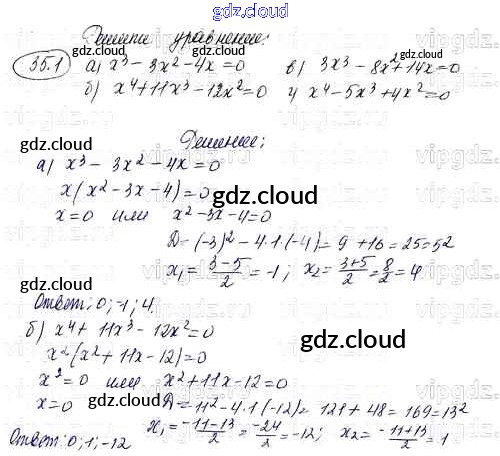 gdz.cloud
Решите уравнение:
35.1 а) x³ - 3x² - 4x = 0 в) 3x³ - 8x² + 14x = 0
б) x⁴ + 11x³ - 12x² = 0 г) x⁴ - 5x³ + 4x² = 0
gdz.cloud gdz.cloud
Решение:
а) x³ - 3x² - 4x = 0
x(x² - 3x - 4) = 0
gdz.cloud
x = 0 или x² - 3x - 4 = 0
D = (-3)² - 4·1·(-4) = 9 + 16 = 25 = 5²
x₁ = (3-5)/2 = -1; x₂ = (3+5)/2 = 8/2 = 4
Ответ: 0; -1; 4.
gdz.cloud
б) x⁴ + 11x³ - 12x² = 0
x²(x² + 11x - 12) = 0
gdz.cloud
x² = 0 или x² + 11x - 12 = 0
x = 0 D = 11² - 4·1·(-12) = 121 + 48 = 169 = 13²
gdz.cloud
x₁ = (-11-13)/2 = -24/2 = -12; x₂ = (-11+13)/2 = 1
Ответ: 0; 1; -12
gdz.cloud